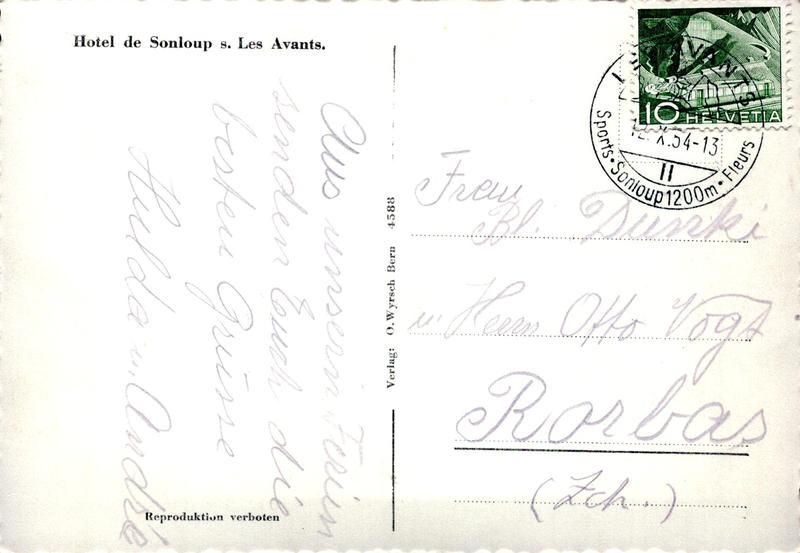 Hotel de Sonloup s. Les Avants.
Aus unsern Ferien
senden Euch die
besten Grüsse
Hulda u. André
Reproduktion verboten
Verlag: O. Wyrsch Bern 4588
10 HELVETIA
LES AVANTS
12.X.54-13
II
Sports • Sonloup 1200m • Fleurs
Frau
Bl. Dünki
u. Herrn Otto Vogt
Rorbas
(Zch.)